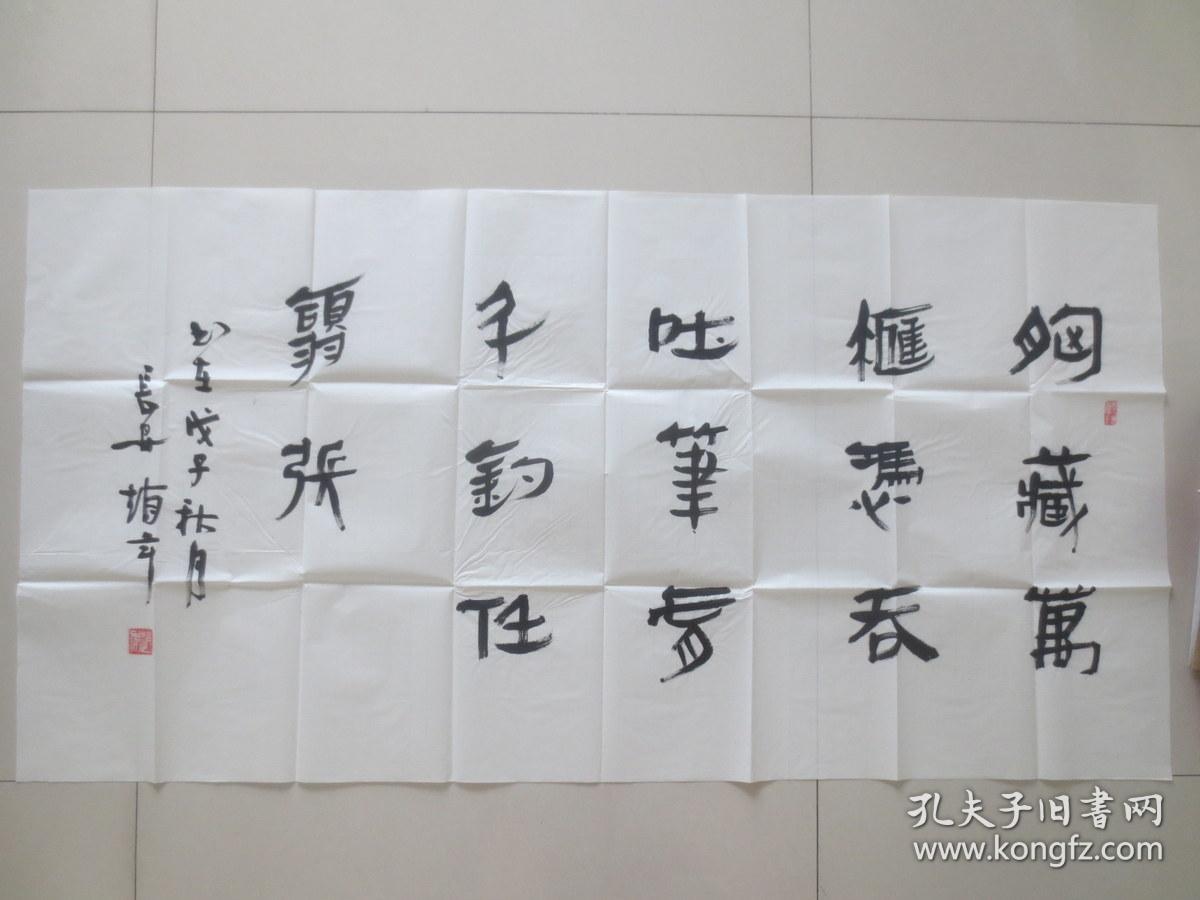 胸藏萬
櫃憑吞
吐筆有
千鈞任
翕張
歲在戊子秋月
長安
孔夫子旧書网
www.kongfz.com